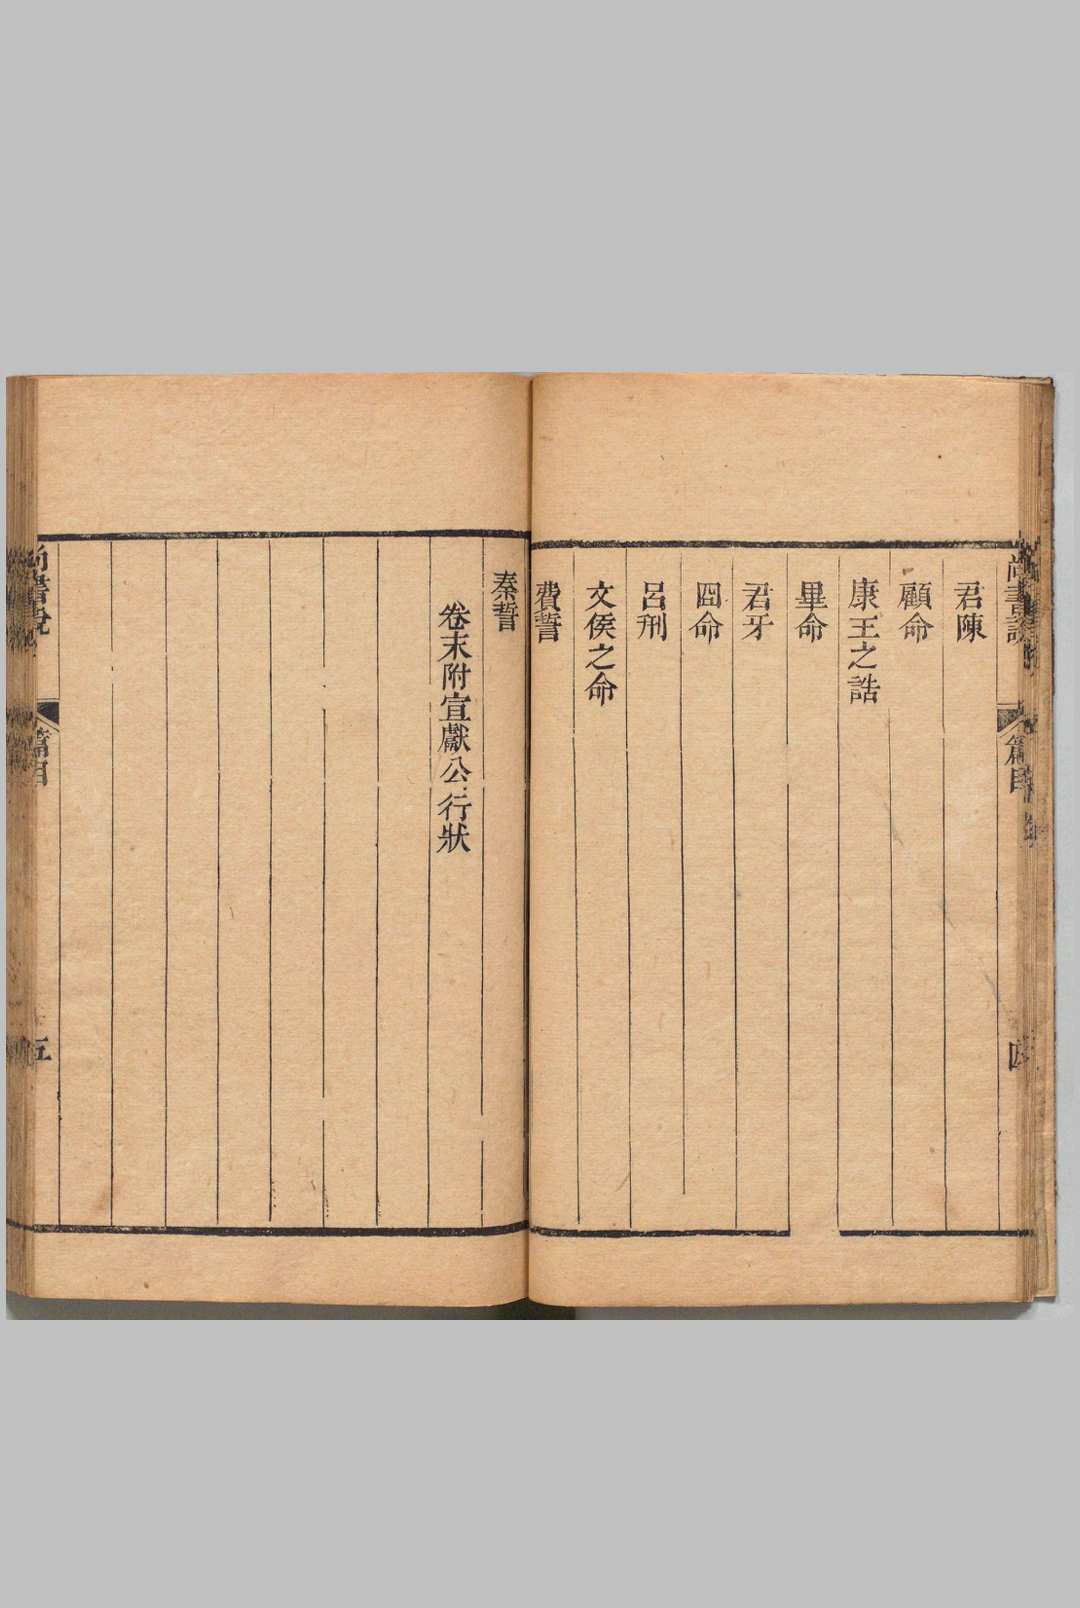 尚書說
篇目
四
君陳
顧命
康王之誥
畢命
君牙
囧命
呂刑
文侯之命
費誓
秦誓
卷末附宣獻公行狀
尚書說
篇目
五